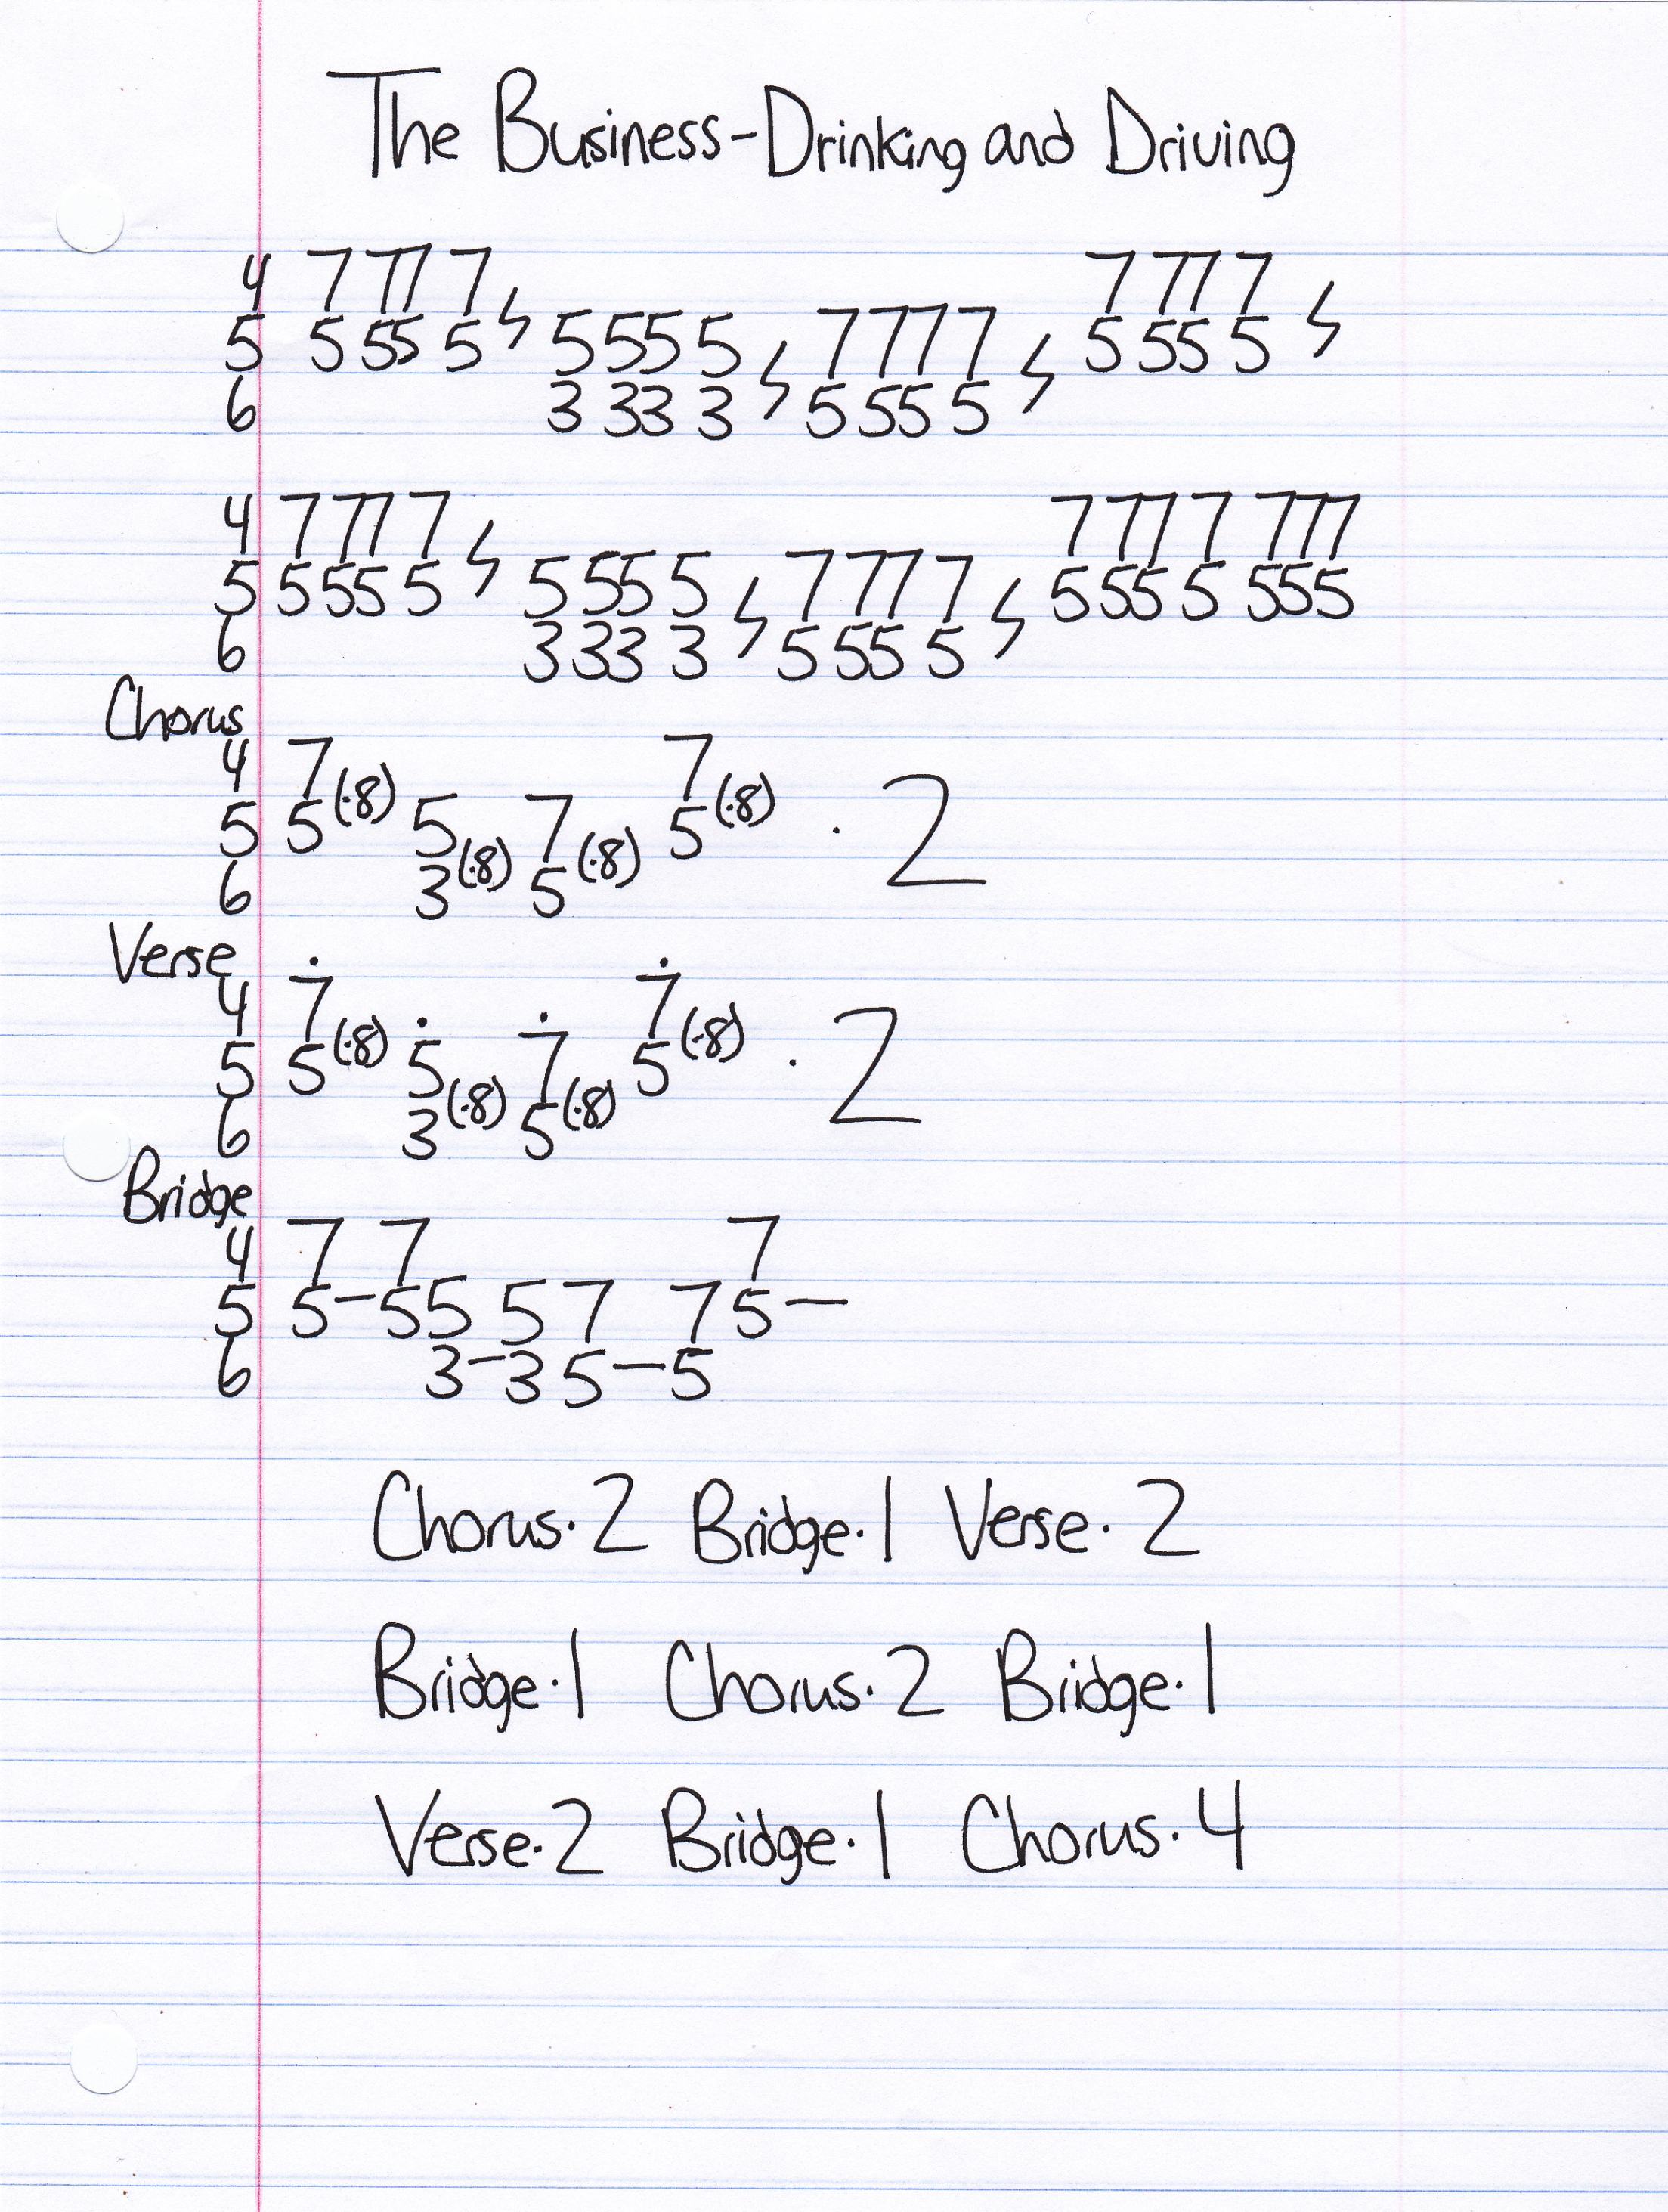 The Business-Drinking and Driving
4 7 77 7 7 77 7
5 5 55 5 ϟ 5 55 5 7 77 7 5 55 5 ϟ
6 3 33 3 ϟ 5 55 5 ϟ
4 7 77 7 7 77 7 777
5 5 55 5 ϟ 5 55 5 7 77 7 5 55 5 555
6 3 33 3 ϟ 5 55 5 ϟ
Chorus
4 7 7
5 5(·8) 5 7 5(·8) · 2
6 3(·8) 5(·8)
Verse
4 7̇ 7̇
5 5(·8) 5̇ 7̇ 5(·8) · 2
6 3(·8) 5(·8)
Bridge
4 7 7 7
5 5–5 5 5 7 7 5–
6 3–3 5–5
Chorus·2 Bridge·1 Verse·2
Bridge·1 Chorus·2 Bridge·1
Verse·2 Bridge·1 Chorus·4